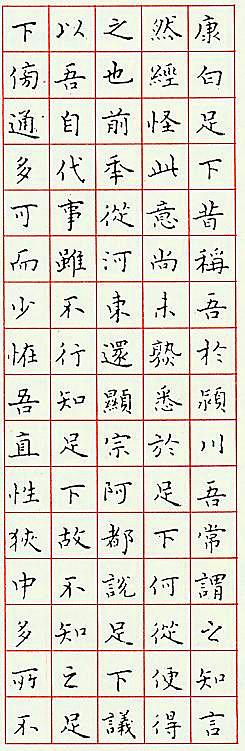 康白足下昔稱吾於潁川吾常謂之知言
然經怪此意尚未熟悉於足下何從便得
之也前秊從河東還顯宗阿都說足下議
以吾自代事雖不行知足下故不知之足
下傍通多可而少恠吾直性狹中多所不